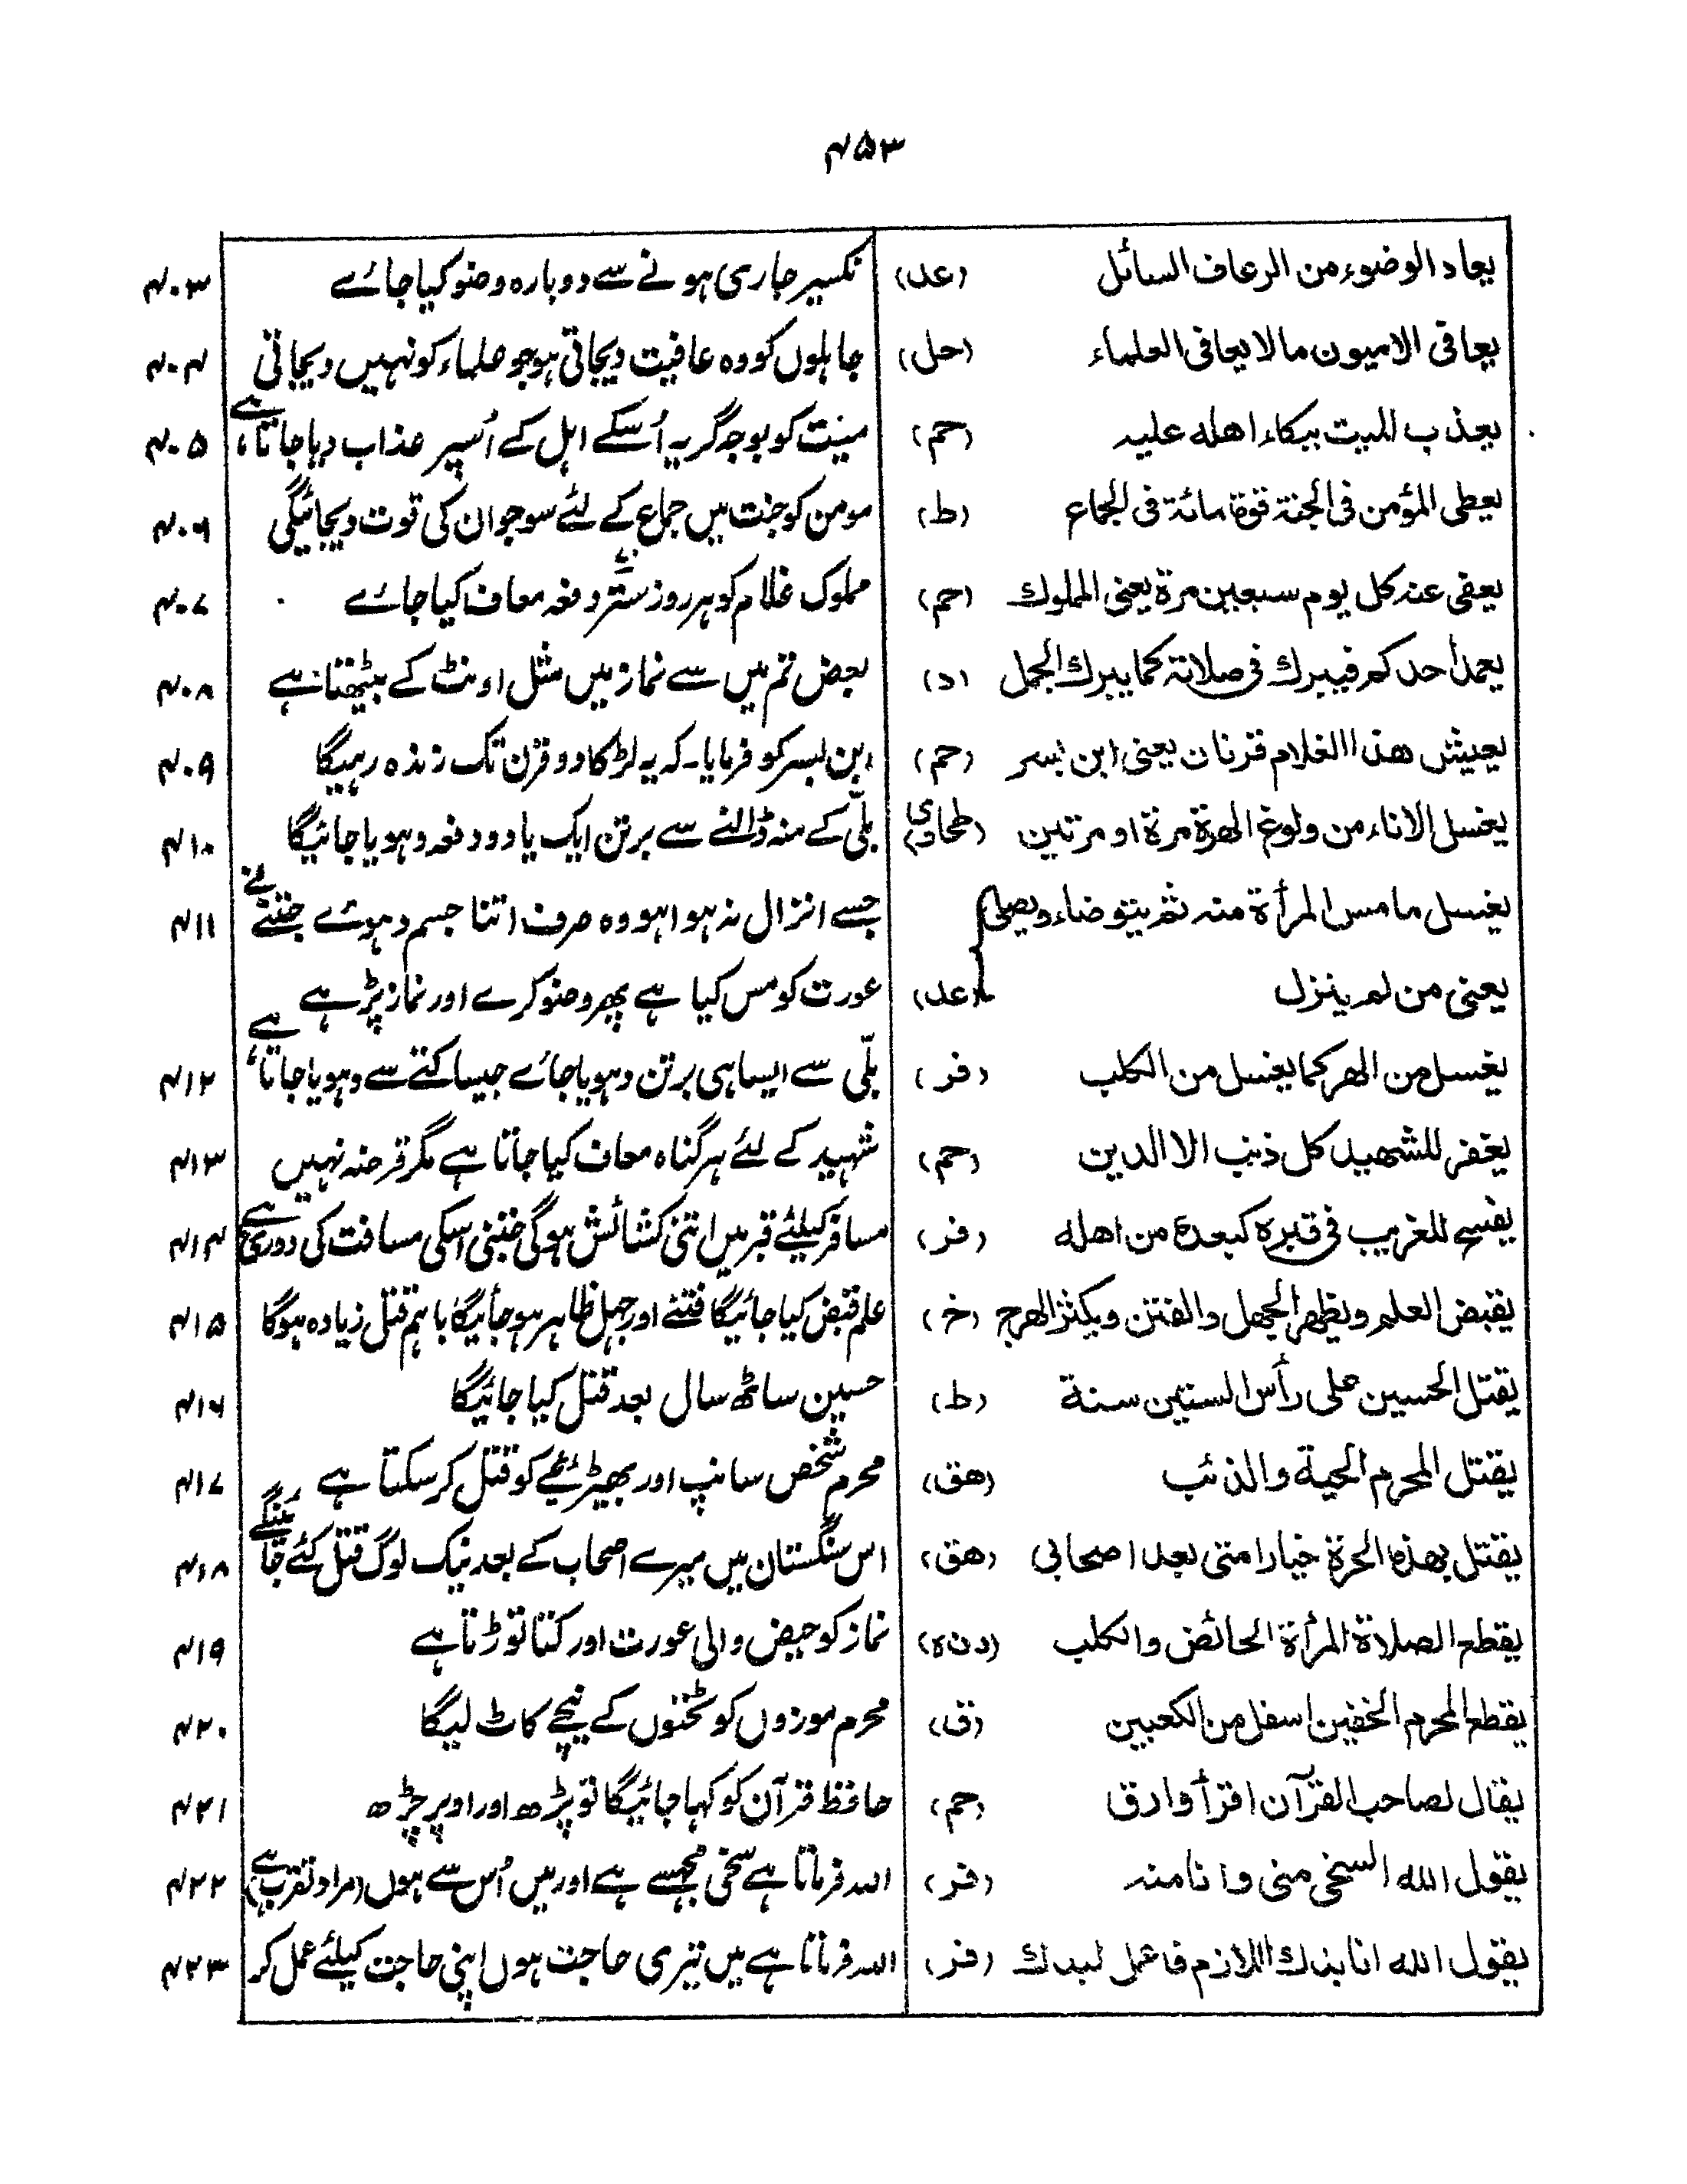 ۴۵۳
يعاد الوضوء من الرعاف السائل (عد) نکسیر جاری ہونے سے دوبارہ وضو کیا جائے ۴۰۳
يعافى الاميون مالا يعافى العلماء (حل) جاہلوں کو وہ عافیت دیجاتی ہو جو علماء کو نہیں دیجاتی ۴۰۴
يعذب الميت ببكاء اهله عليه (حم) میت کو بوجہ گریہ اُسکے اہل کے اُسپر عذاب دیا جاتا ہے ۴۰۵
يعطى المؤمن فى الجنة قوة مائة فى الجماع (ط) مومن کو جنت میں جماع کے لئے سو جوان کی قوت دیجائیگی ۴۰۶
يعفى عنه كل يوم سبعين مرة يعنى المملوك (حم) مملوک غلام کو ہر روز ستّر ۷۰ دفعہ معاف کیا جائے ۴۰۷
يعمد أحدكم فيبرك فى صلاته كما يبرك الجمل (د) بعض تم میں سے نماز میں مثل اونٹ کے بیٹھتا ہے ۴۰۸
يعيش هذا الغلام قرنان يعنى ابن بسر (حم) ابن بسر کو فرمایا۔ کہ یہ لڑکا دو قرن تک زندہ رہیگا ۴۰۹
يغسل الاناء من ولوغ الهرة مرة او مرتين (طحاوی) بلّی کے منہ ڈالنے سے برتن ایک یا دو دفعہ دہویا جائیگا ۴۱۰
يغسل ما مس المرأة منه ثم يتوضاء ويصلى جسے انزال نہ ہوا ہو وہ صرف اتنا جسم دہوئے جتنے نے ۴۱۱
يعنى من لم ينزل (عد) عورت کو مس کیا ہے پھر وضو کرے اور نماز پڑہے
يغسل من الهر كما يغسل من الكلب (فر) بلّی سے ایسا ہی برتن دہویا جائے جیسا کتے سے دہویا جاتا ہے ۴۱۲
يغفر للشهيد كل ذنب الا الدين (حم) شہید کے لئے ہر گناہ معاف کیا جاتا ہے مگر قرضہ نہیں ۴۱۳
يفسح للغريب فى قبره كبعده من اهله (فر) مسافر کیلئے قبر میں اتنی کشائش ہوگی جتنی اسکی مسافت کی دوری ہے ۴۱۴
يقبض العلم ويظهر الجهل والفتن ويكثر الهرج (خ) علم قبض کیا جائیگا فتنے اور جہل ظاہر ہو جائیگا باہم قتل زیادہ ہوگا ۴۱۵
يقتل الحسين على رأس الستين سنة (ط) حسین ساٹھ سال بعد قتل کیا جائیگا ۴۱۶
يقتل المحرم الحية والذئب (هق) محرم شخص سانپ اور بھیڑئیے کو قتل کر سکتا ہے ۴۱۷
يقتل بهذه الحرة خيار امتى بعد اصحابى (هق) اس سنگستان میں میرے اصحاب کے بعد نیک لوگ قتل کئے جائینگے ۴۱۸
يقطع الصلاة المرأة الحائض والكلب (دنه) نماز کو حیض والی عورت اور کتا توڑتا ہے ۴۱۹
يقطع المحرم الخفين اسفل من الكعبين (ق) محرم موزوں کو ٹخنوں کے نیچے کاٹ لیگا ۴۲۰
يقال لصاحب القرآن اقرأ وارق (حم) حافظ قرآن کو کہا جائیگا تو پڑھ اور اوپر چڑھ ۴۲۱
يقول الله السخى منى وانا منه (فر) اللہ فرماتا ہے سخی مجہسے ہے اور میں اُس سے ہوں (مراد تقرب ہے) ۴۲۲
يقول الله انا بدك اللازم فاعمل لبدك (فر) اللہ فرماتا ہے میں تیری حاجت ہوں اپنی حاجت کیلئے عمل کر ۴۲۳